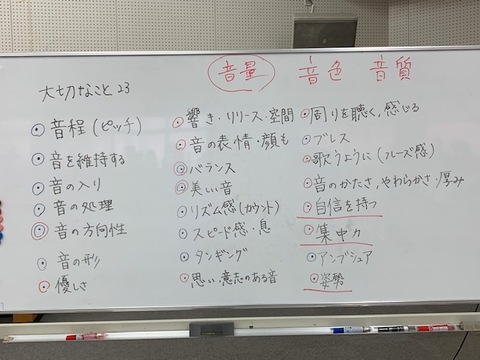 音量 音色 音質
大切なこと23
音程(ピッチ)
音を維持する
音の入り
音の処理
音の方向性
音の形
優しさ
響き・リリース・空間
音の表情・顔も
バランス
美しい音
リズム感(カウント)
スピード感・息
タンギング
思い、意志のある音
周りを聴く、感じる
ブレス
歌うように(フレーズ感)
音のかたさ、やわらかさ・厚み
自信を持つ
集中力
アンブシュア
姿勢